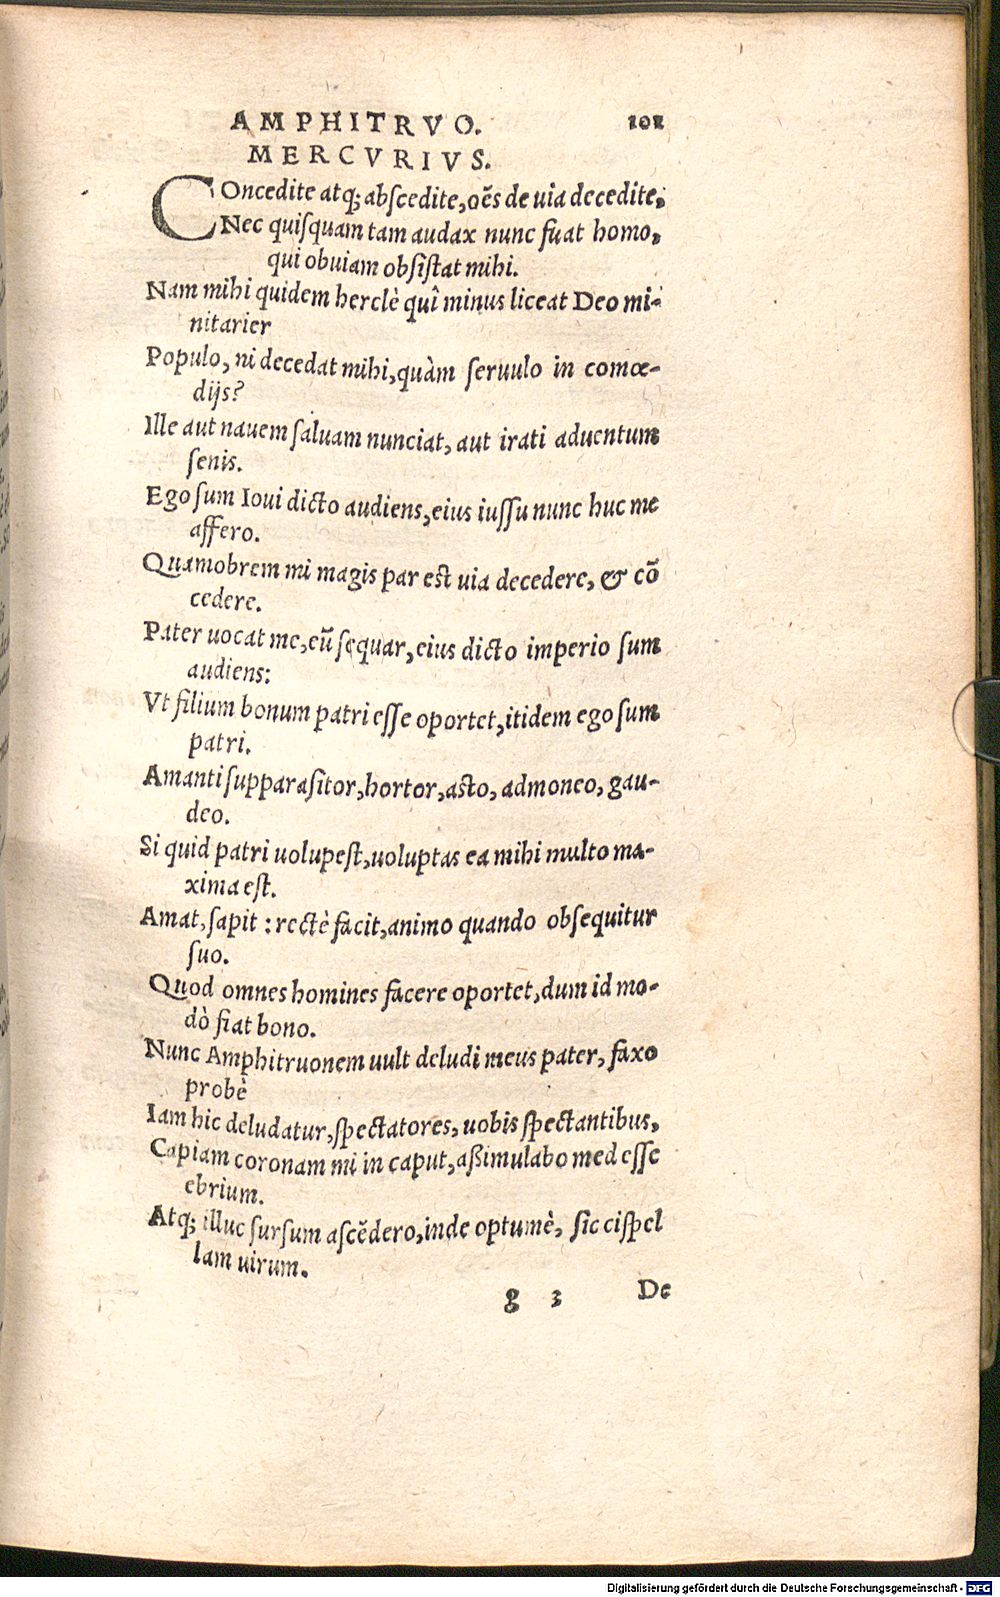 AMPHITRVO. 101
MERCVRIVS.
COncedite atq; abſcedite, oẽs de uia decedite,
Nec quiſquam tam audax nunc fuat homo,
qui obuiam obſiſtat mihi.
Nam mihi quidem herclè quî minus liceat Deo mi-
nitarier
Populo, ni decedat mihi, quàm ſeruulo in comœ-
dijs?
Ille aut nauem ſaluam nunciat, aut irati aduentum
ſenis.
Ego ſum Ioui dicto audiens, eius iuſſu nunc huc me
affero.
Quamobrem mi magis par eſt uia decedere, & cõ
cedere.
Pater uocat me, eũ ſequar, eius dicto imperio ſum
audiens:
Vt filium bonum patri eſſe oportet, itidem ego ſum
patri.
Amanti ſupparaſitor, hortor, aſto, admoneo, gau-
deo.
Si quid patri uolupeſt, uoluptas ea mihi multo ma-
xima eſt.
Amat, ſapit : rectè facit, animo quando obſequitur
ſuo.
Quod omnes homines facere oportet, dum id mo-
dò fiat bono.
Nunc Amphitruonem uult deludi meus pater, faxo
probè
Iam hic deludatur, ſpectatores, uobis ſpectantibus,
Capiam coronam mi in caput, aßimulabo med eſſe
ebrium.
Atq; illuc ſurſum aſcẽdero, inde optumè, ſic ciſpel
lam uirum.
g 3 De
Digitalisierung gefördert durch die Deutsche Forschungsgemeinschaft - DFG